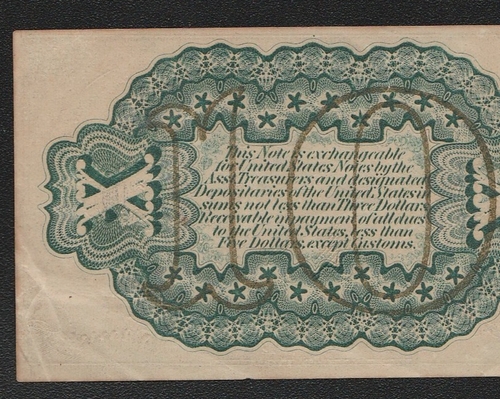 This Note is exchangeable
for United States Notes by the
Asst. Treasurers and designated
Depositaries of the United States in
sums not less than Three Dollars
Receivable in payment of all dues
to the United States, less than
Five Dollars, except Customs.
X
10